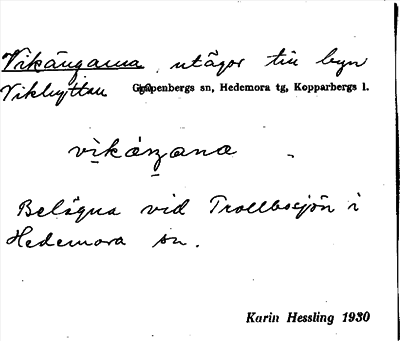 Vikängarna, utägor till byn
Vikhyttan Garpenbergs sn, Hedemora tg, Kopparbergs l.
vikáŋana
Belägna vid Trollbosjön i
Hedemora sn.
Karin Hessling 1930